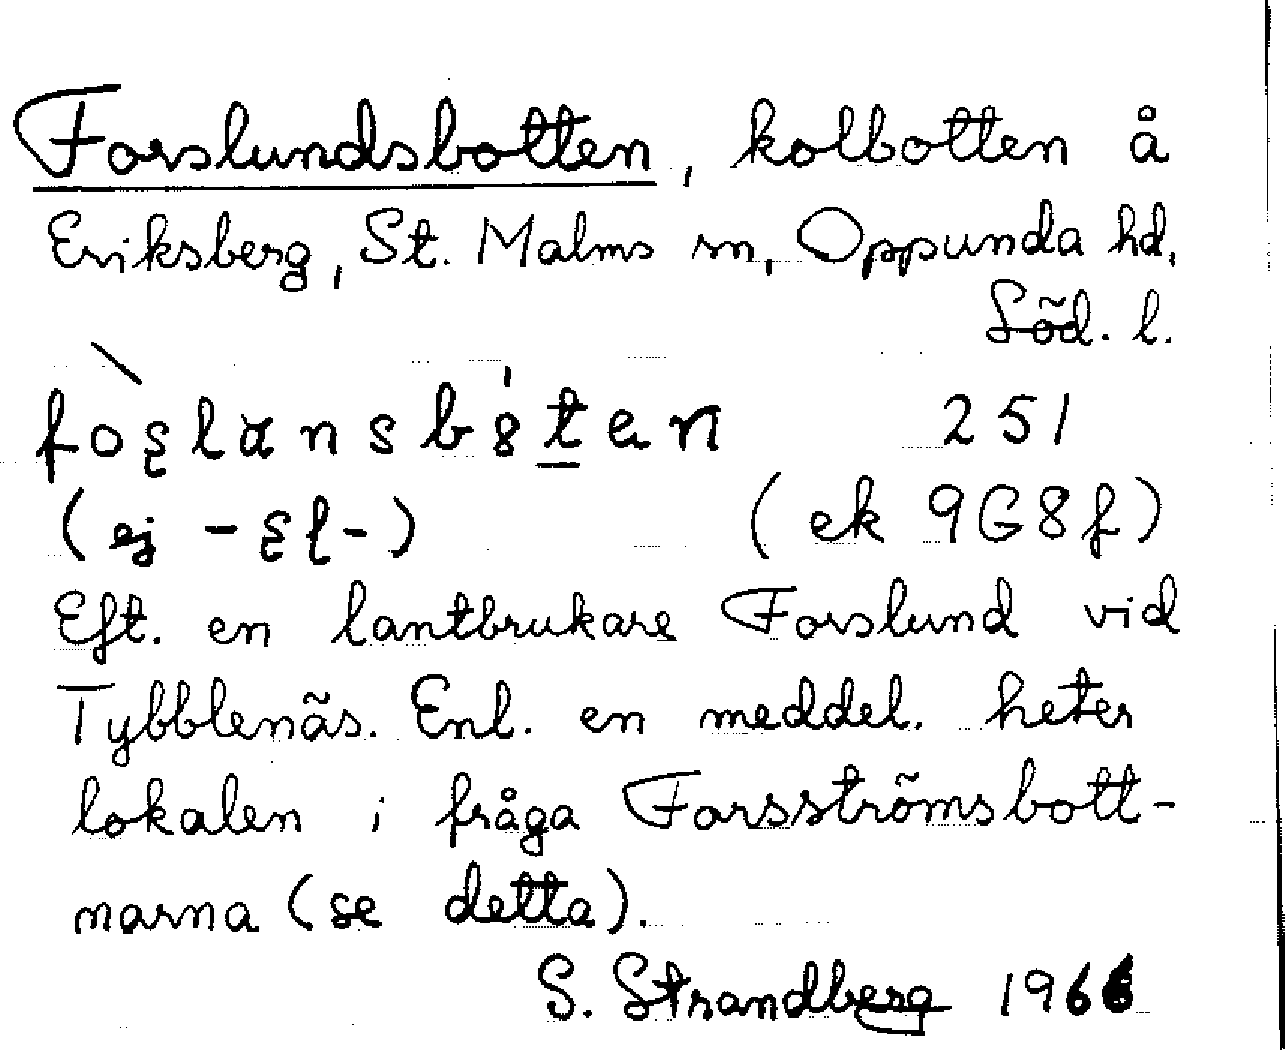 Forslundsbotten, kolbotten å
Eriksberg, St. Malms sn, Oppunda hd,
Söd. l.
251
(ej
(ek 9G8f)
Eft. en lantbrukare Forslund vid
Tybblenäs. Enl. en meddel. heter
lokalen i fråga Forsströmsbott-
narna (se detta).
S. Strandberg 1966